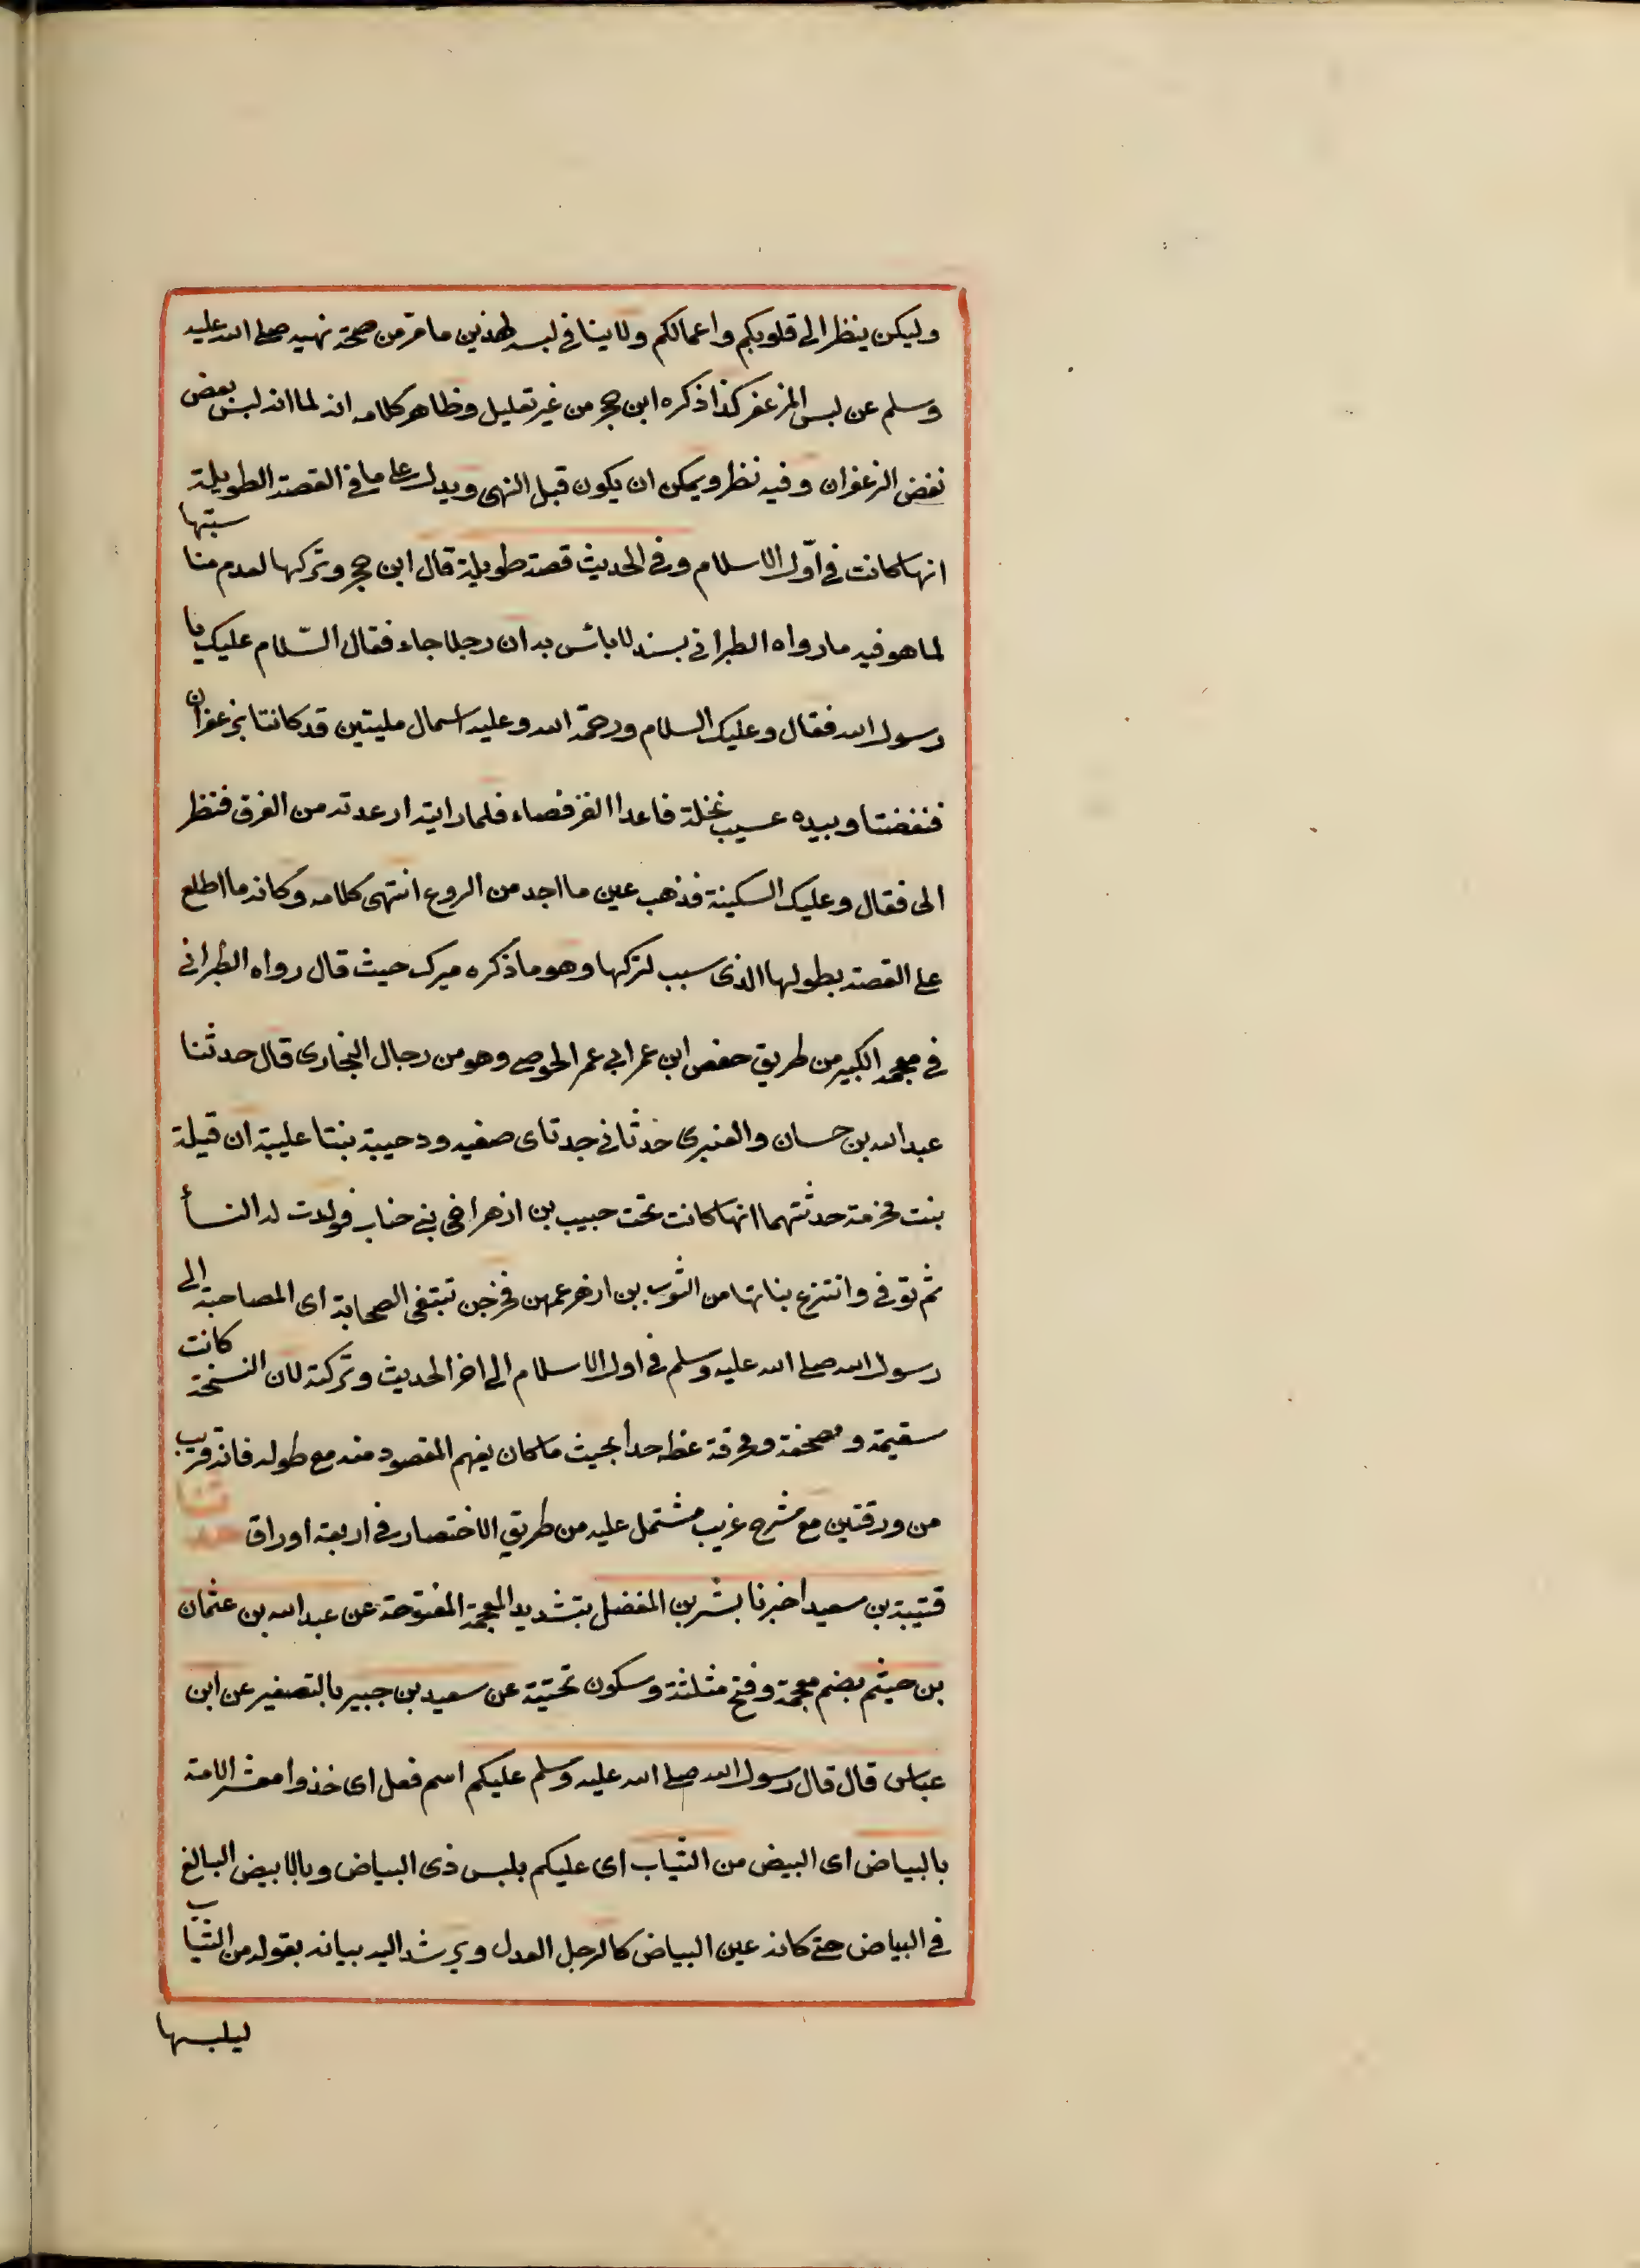 وليكن ينظر الى قلوبكم واعمالكم ولا ينافي لبسه لهذين ما مرّ من صحة نهيه صلى الله عليه
وسلم عن لبس المزعفر كذا ذكره ابن حجر من غير تعليل وظاهر كلامه انه لما انه لبس بعض
نفض الزعفران وفيه نظر ويمكن ان يكون قبل النهى ويدل على ما في القصة الطويلة
انها كانت في اوّل الاسلام وفي الحديث قصة طويلة قال ابن حجر وتركها لعدم مناسبتها
لما هو فيه ما رواه الطبراني بسند لا بأس به ان رجلا جاء فقال السّلام عليك يا
رسول الله فقال وعليك السلام ورحمة الله وعليه اسمال مليتين قد كانتا بزعفران
فنفضتا وبيده عسيب نخلة قاعدا القرفصاء فلما رايته ارعدته من الفرق فنظر
الى فقال وعليك السكينة فذهب عين ما اجد من الروع انتهى كلامه وكانه ما اطلع
على القصة بطولها الذى سبب لتركها وهو ما ذكره ميرك حيث قال رواه الطبراني
في معجمه الكبير من طريق حفص ابن عمر ابي عمر الحوضي وهو من رجال البخارى قال حدثنا
عبدالله بن حسان والعنبرى حدثاني جدتاى صفيه ودحيبة بنتا عليبة ان قيلة
بنت مخرمة حدثتهما انها كانت تحت حبيب بن ازهر اخى بني جناب فولدت له النسأ
ثم توفى وانتزع بناتها من الثوب بن ازهر عمهن فخرجن تبتغى الصحابة اى المصاحبة الى
رسول الله صلى الله عليه وسلم في اول الاسلام الى اخر الحديث وتركته لان النسخة كانت
سقيمة ومصحفة ومحرفة غطه حدا بحيث ما كان يفهم المقصود منه مع طوله فانه قريب
من ورقتين مع شرح غريب مشتمل عليه من طريق الاختصار في اربعة اوراق حدثنا
قتيبة بن سعيد اخبرنا بشر بن المفضل بتشديد المعجمة المفتوحة عن عبدالله بن عثمان
بن حيثم بضم معجمة وفتح مثلثة وسكون تحتية عن سعيد بن جبير بالتصغير عن ابن
عباس قال قال رسول الله صلى الله عليه وسلم عليكم اسم فعل اى خذوا معشر الامة
بالبياض اى البيض من الثياب اى عليكم بلبس ذى البياض وبالابيض البالغ
في البياض حتى كانه عين البياض كالرجل العدل ويرشد اليه بيانه بقوله من الثياب
ليلبسها